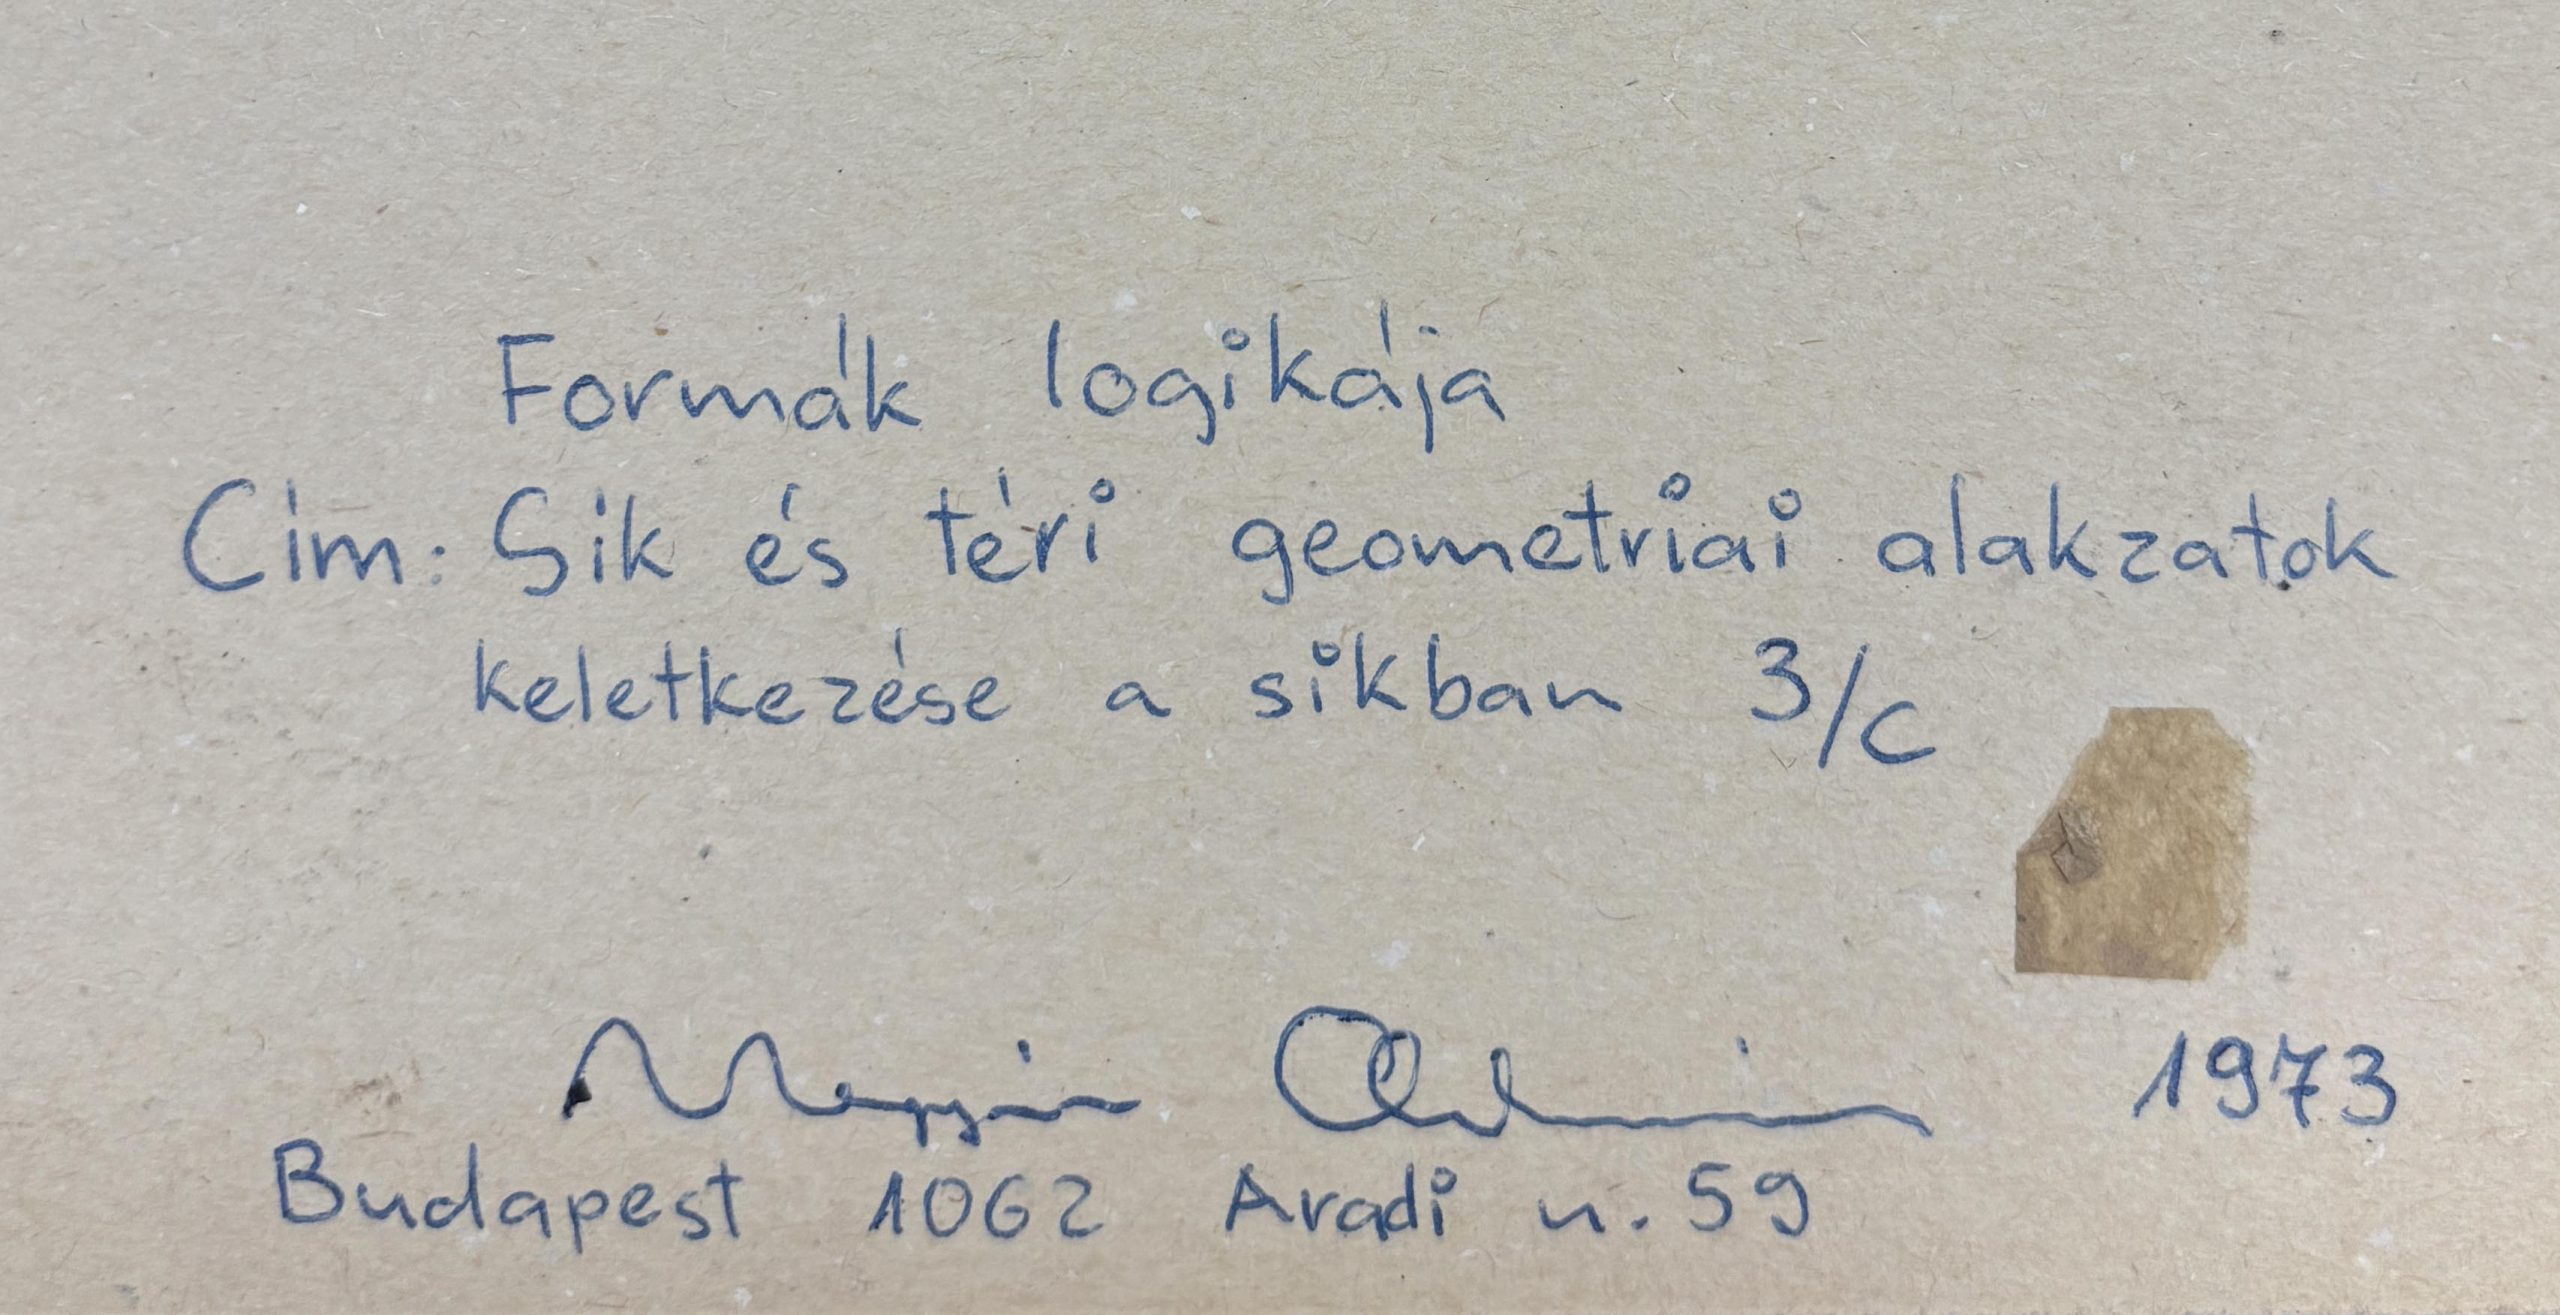 Formák logikája
Cím: Sik és téri geometriai alakzatok
keletkezése a sikban 3/c
1973
Budapest 1062 Aradi u. 59